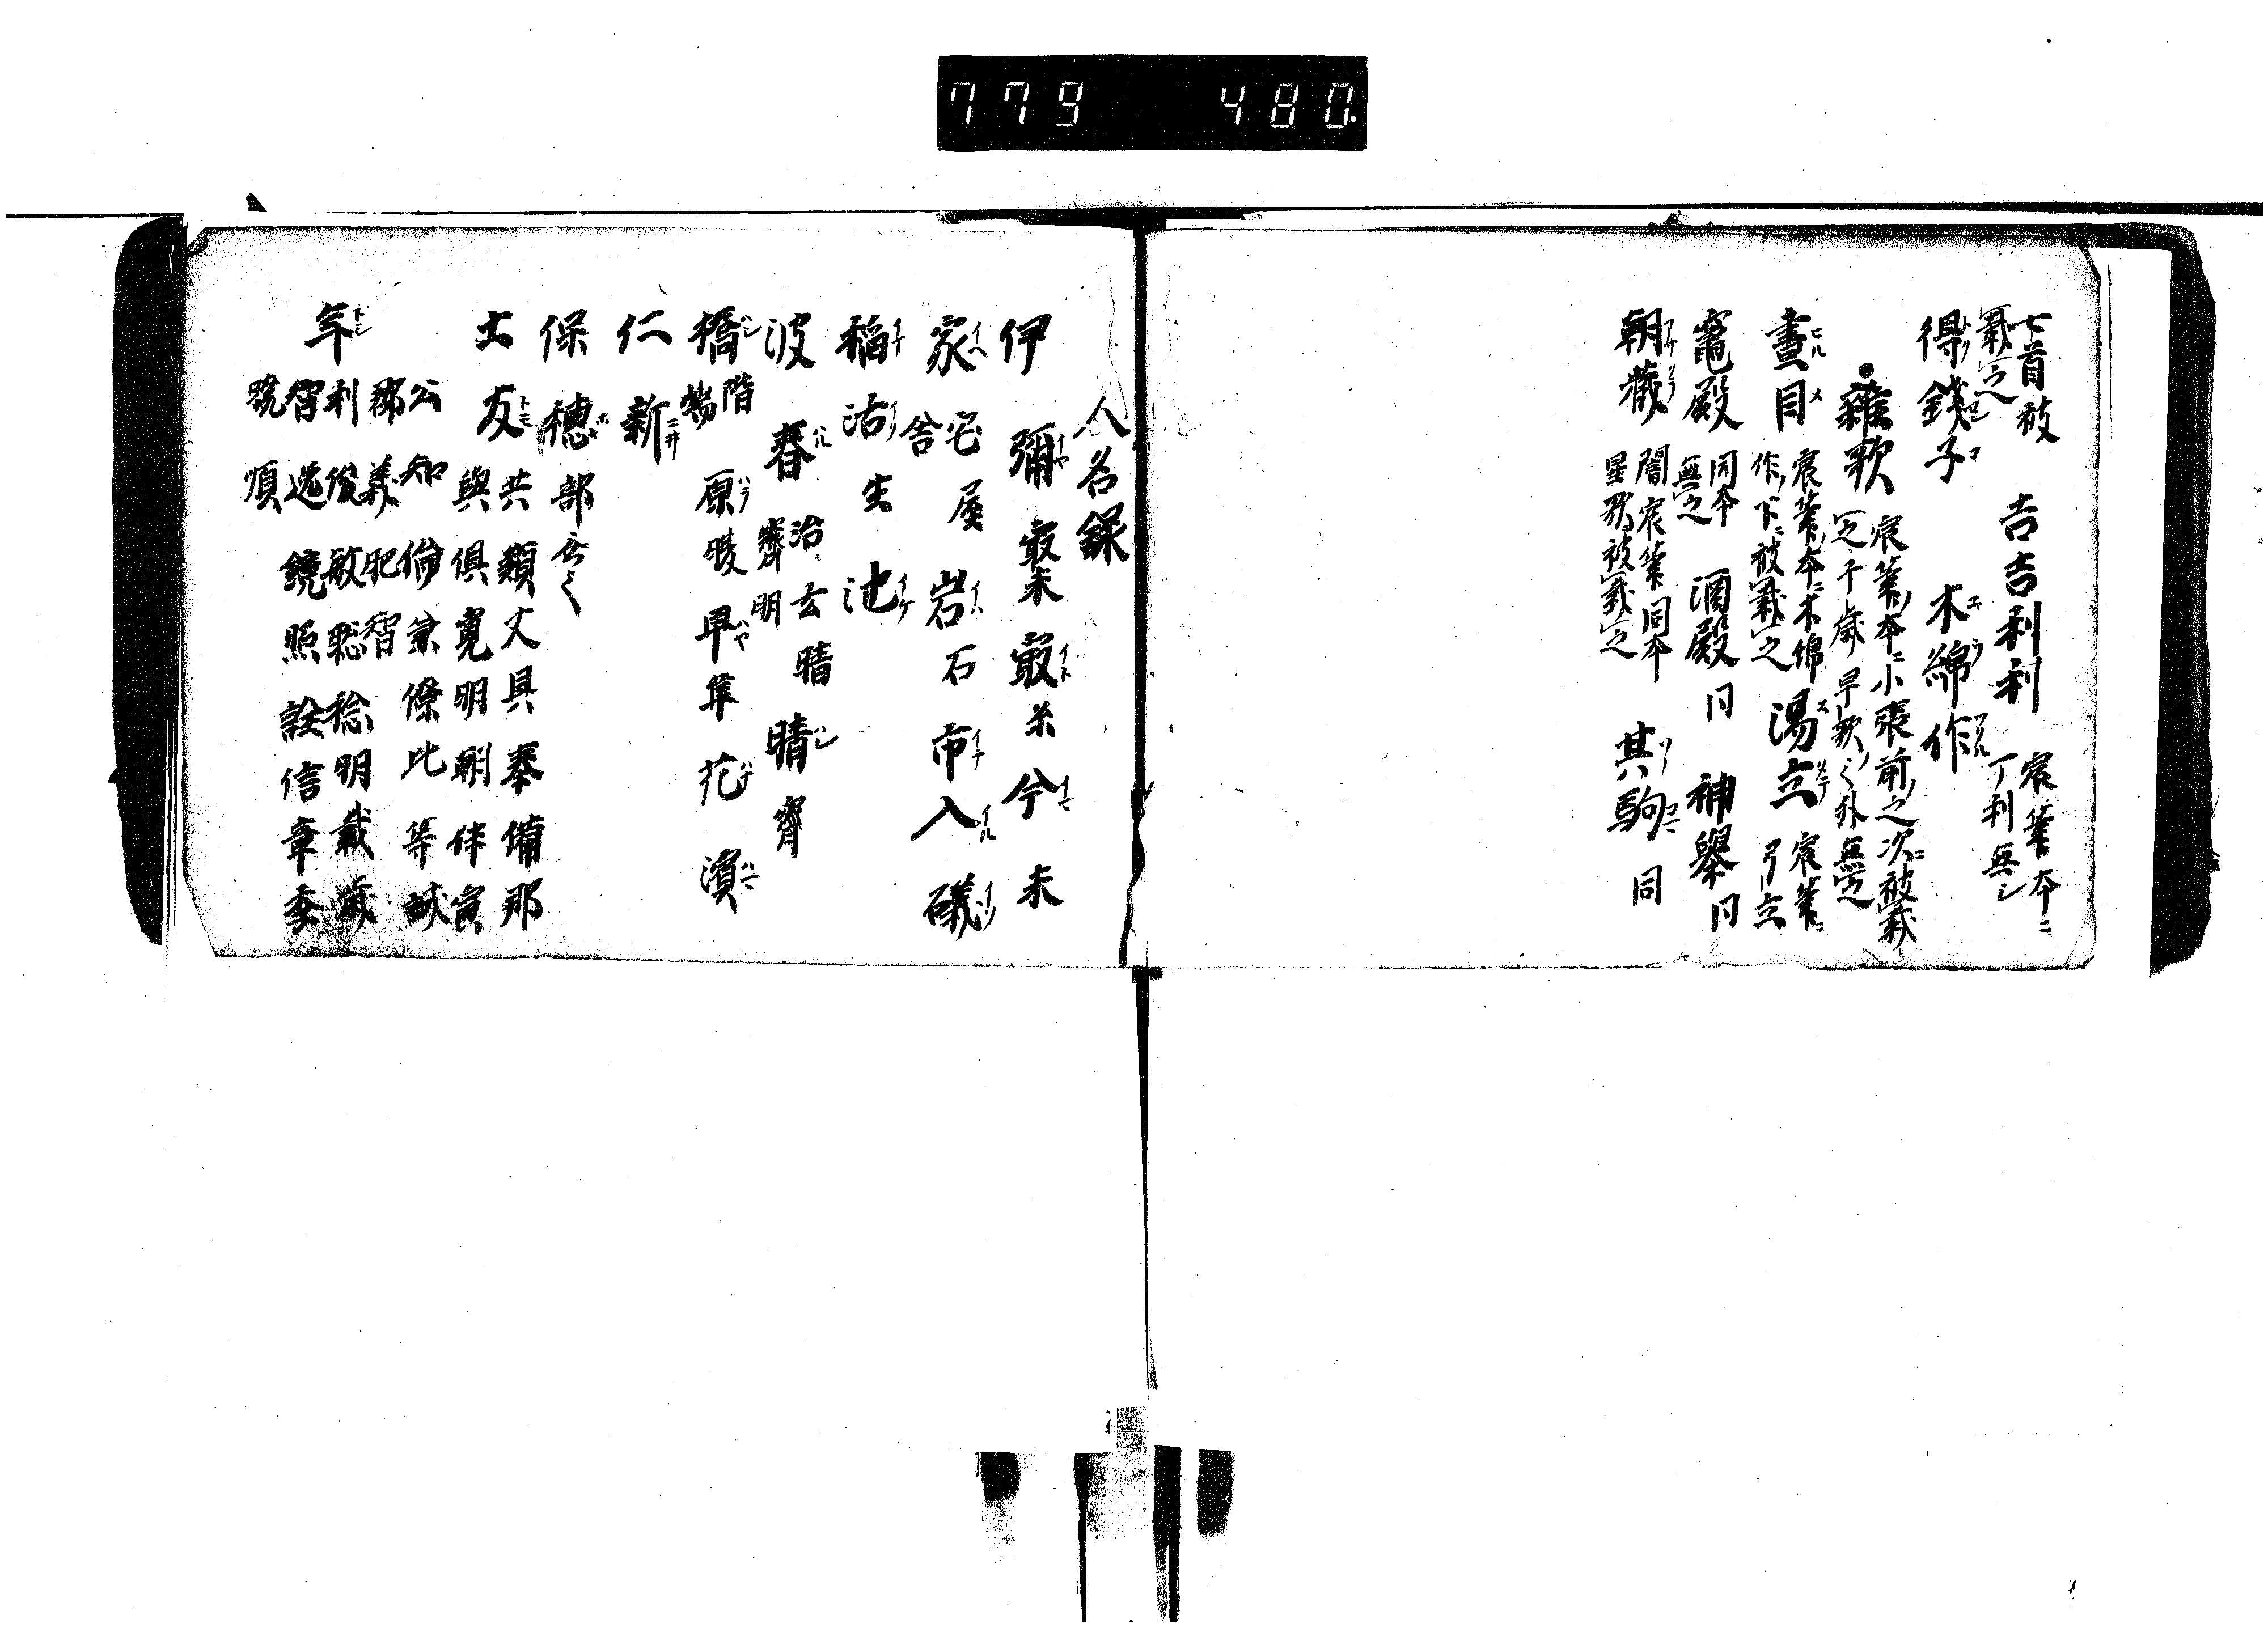 779 480
七首被　吉吉利利　宸筆本ニ
載之　丁利無シ
得錢子　木綿作
雜歌　宸筆ノ本ニ小張前之次ニ被載
之千歳早歌ノ外無之
晝目　宸筆ノ本ニ木綿　湯立　宸筆ニ
作ノ下ニ被載之　弓立
竈殿　同本　酒殿　同　神擧　同
無之
朝藏　闇宸筆同本　其駒　同
星歌被載之
人名録
伊　彌　最未　最　糸　今　未
家　宅　屋　岩　石　市　入　礒
舎
稲　活　生　池
波　春　治　玄　晴　晴　齊
齊　明
橋　階　原　暖　早　隼　花　濱
端
仁　新
保　穂　部　云々
士　友　共　類　丈　具　奉　備　那
與　倶　寛　明　朝　伴　寅
公　知　倫　兼　僚　比　等　誠
郷　義　肥　智
年　利　俊　敏　聡　稔　明　載　歳
智　逸　鏡　照　詮　信　章　季
順